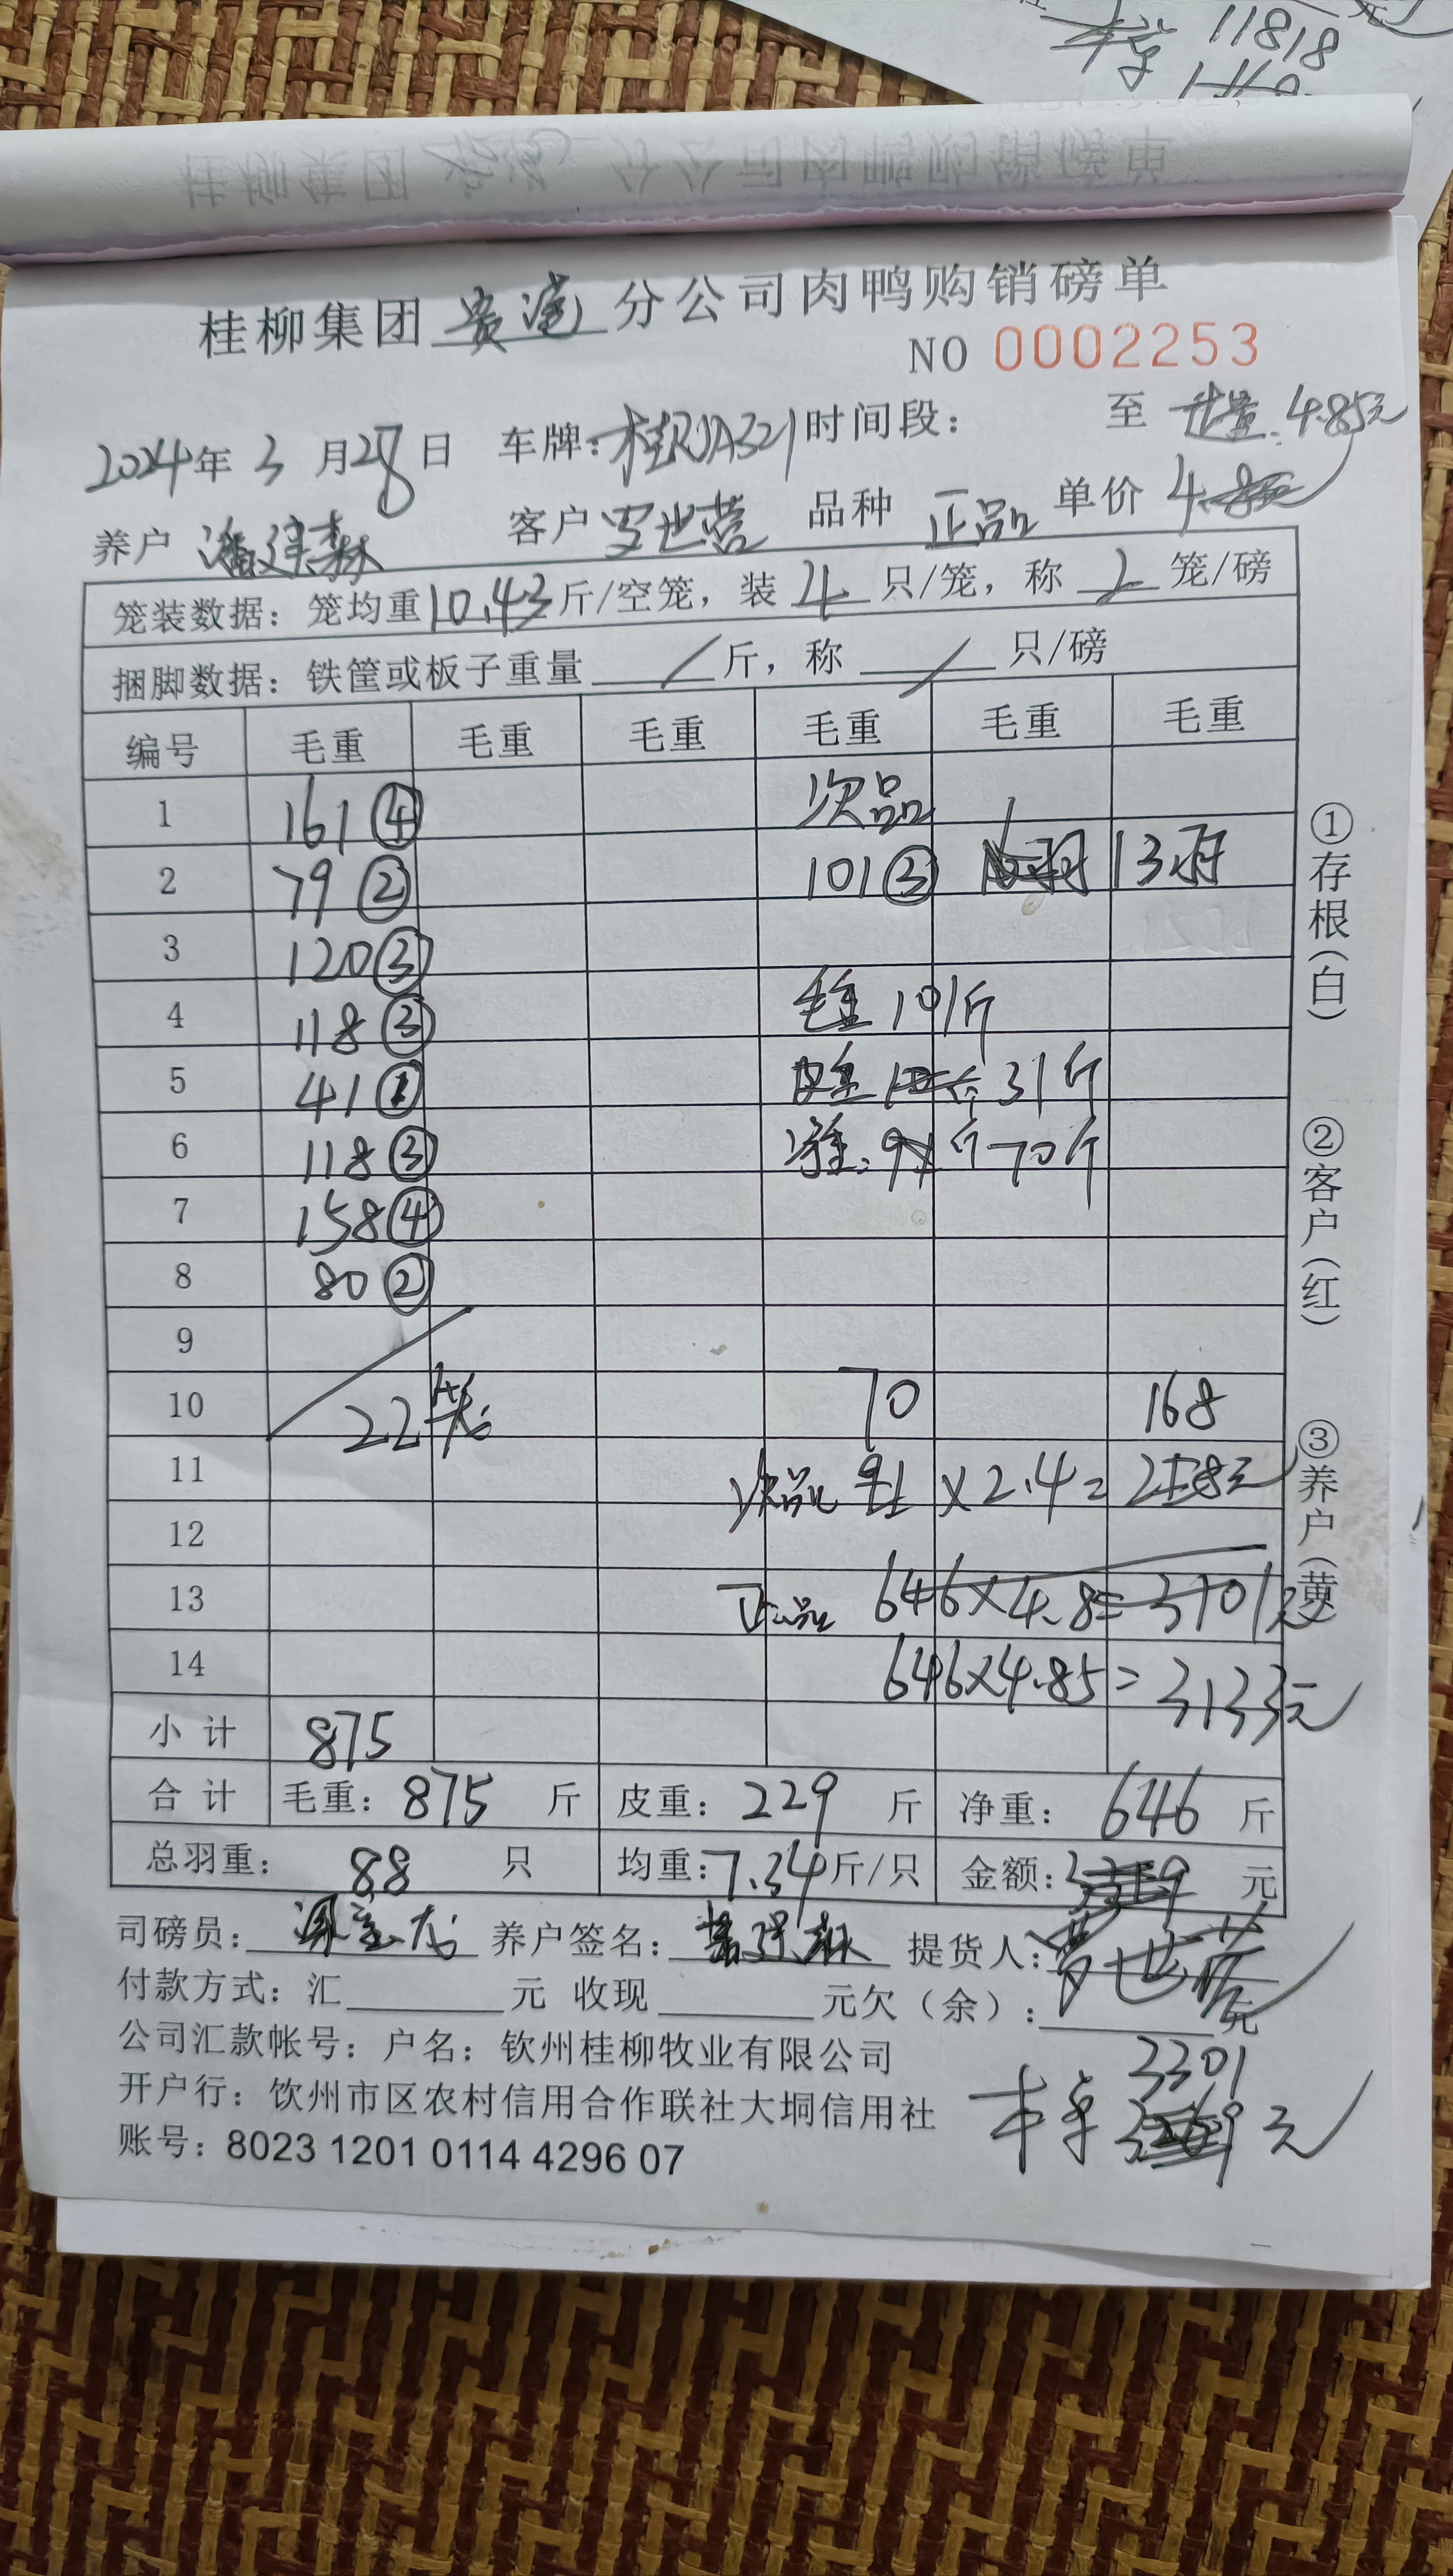 11818
桂柳集团 贵港 分公司肉鸭购销磅单
NO 0002253
2024年 3 月28日 车牌: 时间段: 至 4.85元
养户 客户 罗世营 品种 正品 单价 4.8
笼装数据: 笼均重10.43斤/空笼, 装 4 只/笼, 称 2 笼/磅
捆脚数据: 铁筐或板子重量 / 斤, 称 / 只/磅
编号 毛重 毛重 毛重 毛重 毛重 毛重
1 161④ 次品
2 79② 101③ 13羽
3 120③
4 118③ 毛重 101斤
5 41① 皮重 31斤
6 118③ 净重: 70斤
7 158④
8 80②
9
10 22笼 70 168
11 次品 ×2.4=
12
13 正品 646×4.8=3101元
14 646×4.85=3133元
小计 875
合计 毛重: 875 斤 皮重: 229 斤 净重: 646 斤
总羽重: 88 只 均重: 7.34斤/只 金额: 元
司磅员: 养户签名: 提货人: 罗世营
付款方式: 汇 元 收现 元欠(余): 元
公司汇款帐号: 户名: 钦州桂柳牧业有限公司
开户行: 饮州市区农村信用合作联社大垌信用社
账号: 8023 1201 0114 4296 07
3301
元
①存根(白)
②客户(红)
③养户(黄)